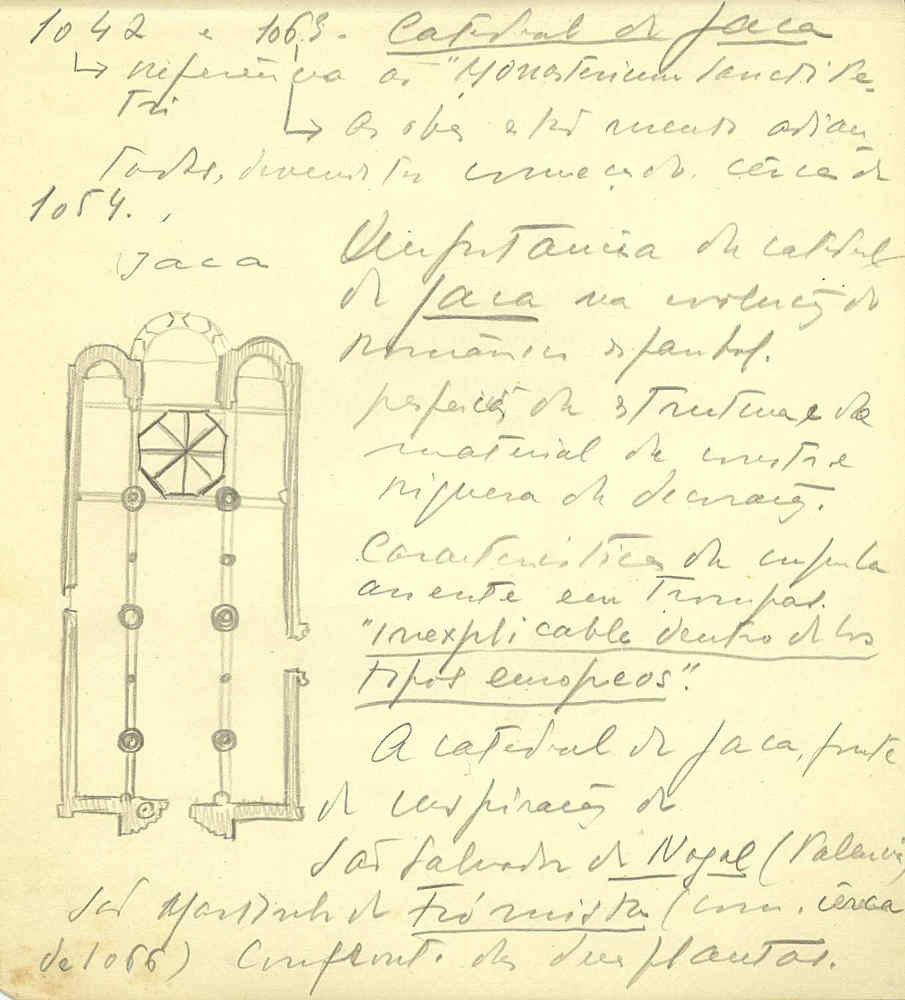 1042 e 1063. Catedral de Jaca
referência ao "Monasterium Sancti Pe-
tri
As obras estão mento adian
tadas, devendo ter começado cêrca de
1054.
Jaca
A importancia da catedral
de Jaca na evolução do
românico espanhol.
perfeição da estrutura e da
material da mestre
riqueza da decoração.
Caracteristica da cupula
assente em Trompas.
"Inexplicable dentro de los
tipos europeos".
A catedral de Jaca, fonte
de inspiração de
São Salvador de Nogal (Palencia)
São Martinho de Frómista (com. cêrca
de 1066) Confronto das duas plantas.